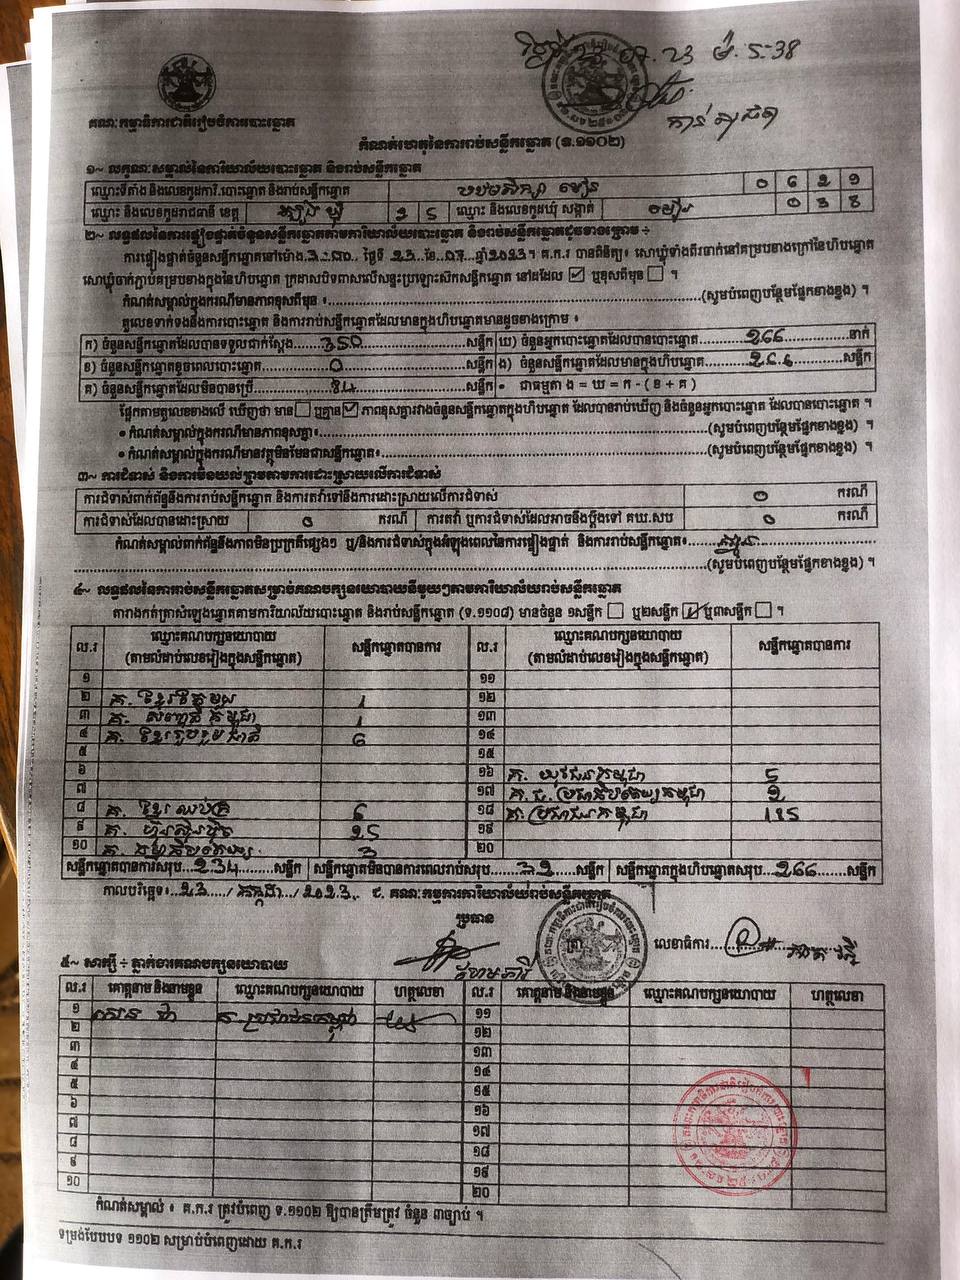 គណៈកម្មាធិការជាតិរៀបចំការបោះឆ្នោត
កំណត់ហេតុនៃការរាប់សន្លឹកឆ្នោត (ទ.១១០២)
១~ លក្ខណៈសម្គាល់នៃការិយាល័យបោះឆ្នោត និងរាប់សន្លឹកឆ្នោត
ឈ្មោះទីតាំង និងលេខកូដការិ.បោះឆ្នោត និងរាប់សន្លឹកឆ្នោត ០ ៦ ២ ១
ឈ្មោះ និងលេខកូដរាជធានី ខេត្ត ត្បូងឃ្មុំ ២ ៥ ឈ្មោះ និងលេខកូដឃុំ សង្កាត់ ០ ៣ ៥
២~ លទ្ធផលនៃការផ្ទៀងផ្ទាត់ចំនួនសន្លឹកឆ្នោតតាមការិយាល័យបោះឆ្នោត និងរាប់សន្លឹកឆ្នោតដូចខាងក្រោម ៖
ការផ្ទៀងផ្ទាត់ចំនួនសន្លឹកឆ្នោតនៅម៉ោង 3:00 ថ្ងៃទី 23 ខែ 07 ឆ្នាំ 2023។ គ.ក.រ បានពិនិត្យ៖ សោឃ្លុំទាំងពីរចាក់នៅគម្របខាងក្រៅនៃហិបឆ្នោត
សោឃ្លុំចាក់ភ្ជាប់គម្របខាងក្នុងនៃហិបឆ្នោត ក្រដាសបិទពាសលើសន្ទះប្រឡោះសិកសន្លឹកឆ្នោត នៅដដែល ☑ ឬខុសពីមុន ☐ ។
កំណត់សម្គាល់ក្នុងករណីមានភាពខុសពីមុន ៖ (សូមបំពេញបន្ថែមផ្នែកខាងខ្នង) ។
តួលេខទាក់ទងនឹងការបោះឆ្នោត និងការរាប់សន្លឹកឆ្នោតដែលមានក្នុងហិបឆ្នោតមានដូចខាងក្រោម ៖
ក) ចំនួនសន្លឹកឆ្នោតដែលបានទទួលជាក់ស្ដែង 350 សន្លឹក ឃ) ចំនួនអ្នកបោះឆ្នោតដែលបានបោះឆ្នោត 266 នាក់
ខ) ចំនួនសន្លឹកឆ្នោតខូចពេលបោះឆ្នោត 0 សន្លឹក ង) ចំនួនសន្លឹកឆ្នោតដែលមានក្នុងហិបឆ្នោត 266 សន្លឹក
គ) ចំនួនសន្លឹកឆ្នោតដែលមិនបានប្រើ 84 សន្លឹក • ជាធម្មតា ង = ឃ = ក - ( ខ + គ )
ផ្អែកតាមតួលេខខាងលើ ឃើញថា មាន ☐ ឬគ្មាន ☑ ភាពខុសគ្នារវាងចំនួនសន្លឹកឆ្នោតក្នុងហិបឆ្នោត ដែលបានរាប់ឃើញ និងចំនួនអ្នកបោះឆ្នោត ដែលបានបោះឆ្នោត ។
• កំណត់សម្គាល់ក្នុងករណីមានភាពខុសគ្នា៖ (សូមបំពេញបន្ថែមផ្នែកខាងខ្នង) ។
• កំណត់សម្គាល់ក្នុងករណីមានវត្ថុមិនមែនជាសន្លឹកឆ្នោត៖ (សូមបំពេញបន្ថែមផ្នែកខាងខ្នង) ។
៣~ ការជំទាស់ និងការមិនយល់ព្រមតាមការដោះស្រាយលើការជំទាស់
ការជំទាស់ពាក់ព័ន្ធនឹងការរាប់សន្លឹកឆ្នោត និងការតវ៉ាទៅនឹងការដោះស្រាយលើការជំទាស់ 0 ករណី
ការជំទាស់ដែលបានដោះស្រាយ 0 ករណី ការតវ៉ា ឬការជំទាស់ដែលអាចនឹងប្ដឹងទៅ គឃ.សប 0 ករណី
កំណត់សម្គាល់ពាក់ព័ន្ធនឹងភាពមិនប្រក្រតីផ្សេងៗ ឬ/និងការជំទាស់ក្នុងអំឡុងពេលនៃការផ្ទៀងផ្ទាត់ និងការរាប់សន្លឹកឆ្នោត៖
(សូមបំពេញបន្ថែមផ្នែកខាងខ្នង) ។
៤~ លទ្ធផលនៃការរាប់សន្លឹកឆ្នោតសម្រាប់គណបក្សនយោបាយនីមួយៗតាមការិយាល័យរាប់សន្លឹកឆ្នោត
តារាងកត់ត្រាសំឡេងឆ្នោតតាមការិយាល័យបោះឆ្នោត និងរាប់សន្លឹកឆ្នោត (ទ.១១០៨) មានចំនួន ១សន្លឹក ☐ ឬ២សន្លឹក ☑ ឬ៣សន្លឹក ☐ ។
ល.រ ឈ្មោះគណបក្សនយោបាយ (តាមលំដាប់លេខរៀងក្នុងសន្លឹកឆ្នោត) សន្លឹកឆ្នោតបានការ ល.រ ឈ្មោះគណបក្សនយោបាយ (តាមលំដាប់លេខរៀងក្នុងសន្លឹកឆ្នោត) សន្លឹកឆ្នោតបានការ
១ ១១
២ គ. ខ្មែរតែមួយ 1 ១២
៣ គ. សញ្ជាតិកម្ពុជា 1 ១៣
៤ គ. ខ្មែររួបរួមជាតិ 6 ១៤
៥ ១៥
៦ ១៦ គ. យុវជនកម្ពុជា 5
៧ ១៧ គ. ជ. ប្រជាធិបតេយ្យកម្ពុជា 2
៨ គ. ខ្មែរឈប់ក្រ 6 ១៨ គ. ប្រជាជនកម្ពុជា 185
៩ គ. ហ៊្វុនស៊ិនប៉ិច 25 ១៩
១០ គ. ធម្មាធិបតេយ្យ 3 ២០
សន្លឹកឆ្នោតបានការសរុប 234 សន្លឹក សន្លឹកឆ្នោតមិនបានការពេលរាប់សរុប 32 សន្លឹក សន្លឹកឆ្នោតក្នុងហិបឆ្នោតសរុប 266 សន្លឹក
កាលបរិច្ឆេទ៖ 23 / កក្កដា / 2023. ជ. គណៈកម្មការការិយាល័យរាប់សន្លឹកឆ្នោត
ប្រធាន
ត្រា
លេខាធិការ
៥~ សាក្សី ៖ ភ្នាក់ងារគណបក្សនយោបាយ
ល.រ គោត្តនាម និងនាមខ្លួន ឈ្មោះគណបក្សនយោបាយ ហត្ថលេខា ល.រ គោត្តនាម និងនាមខ្លួន ឈ្មោះគណបក្សនយោបាយ ហត្ថលេខា
១ គ. ប្រជាជនកម្ពុជា ១១
២ ១២
៣ ១៣
៤ ១៤
៥ ១៥
៦ ១៦
៧ ១៧
៨ ១៨
៩ ១៩
១០ ២០
កំណត់សម្គាល់ ៖ គ.ក.រ ត្រូវបំពេញ ទ.១១០២ ឱ្យបានត្រឹមត្រូវ ចំនួន ៣ច្បាប់ ។
ទម្រង់បែបបទ ១១០២ សម្រាប់បំពេញដោយ គ.ក.រ